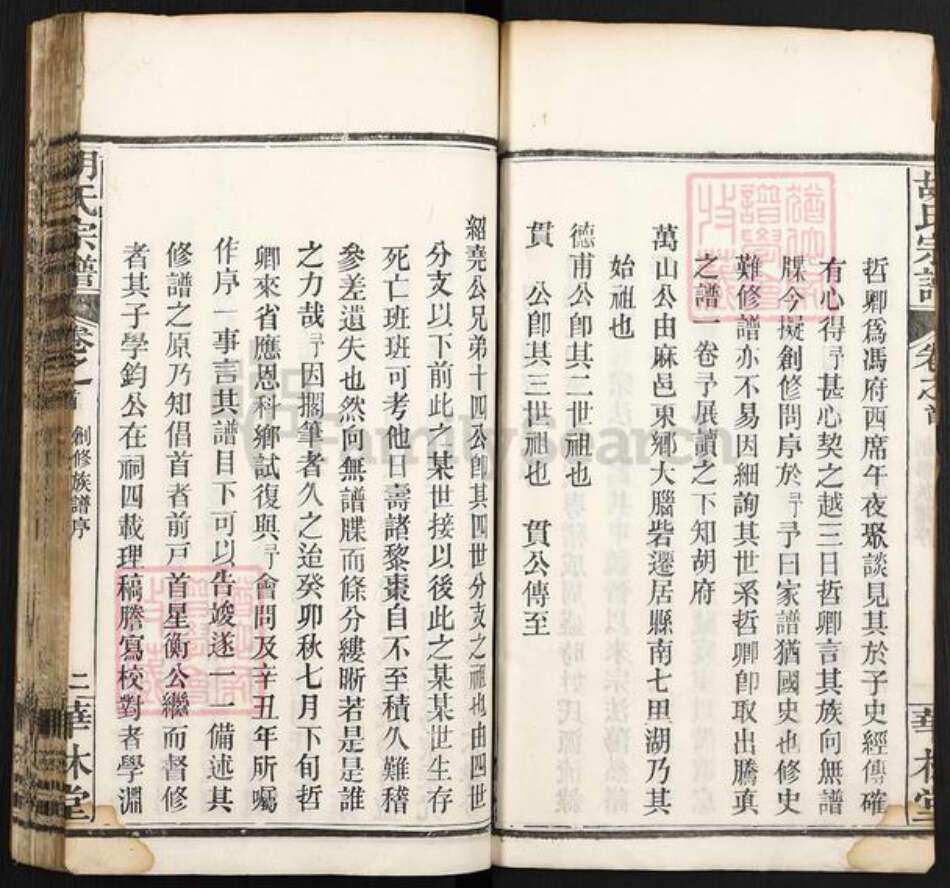 胡氏宗譜
卷之首
華林堂
哲卿為馮府西席午夜聚談見其於子史經傳確
有心得予甚心契之越三日哲卿言其族向無譜
牒今擬創修問序於予予曰家譜猶國史也修史
難修譜亦不易因細詢其世系哲卿卽取出謄真
之譜一卷予展讀之下知胡府
萬山公由麻邑東鄉大腦砦遷居縣南七里湖乃其
始祖也
德甫公卽其二世祖也
貫　公卽其三世祖也　貫公傳至
紹堯公兄弟十四公卽其四世分支之祖也由四世
分支以下前此之某世接以後此之某某世生存
死亡班班可考他日壽諸黎棗自不至積久難稽
參差遺失也然向無譜牒而條分縷晰若是是誰
之力哉予因擱筆者久之迨癸卯秋七月下旬哲
卿來省應恩科鄉試復與予會問及辛丑年所囑
作序一事言其譜目下可以告竣遂一一備述其
修譜之原乃知倡首者前戸首星衡公繼而督修
者其子學鈞公在祠四載理稿謄寫校對者學淵
胡氏宗譜
卷之首
創修族譜序
二
華林堂
FamilySearch